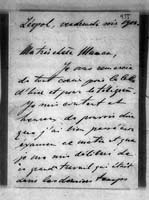 Léopol, vendredi soir 1902.
Ma très chère Maman,
Je vous remercie
de tout cœur pour la belle
et pour le télégr.
Je suis content et
heureux, de pouvoir dire
que j'ai bien passé mon
examen ce matin et que
je me suis délivré de
ce grand travail qui était
dans les derniers temps